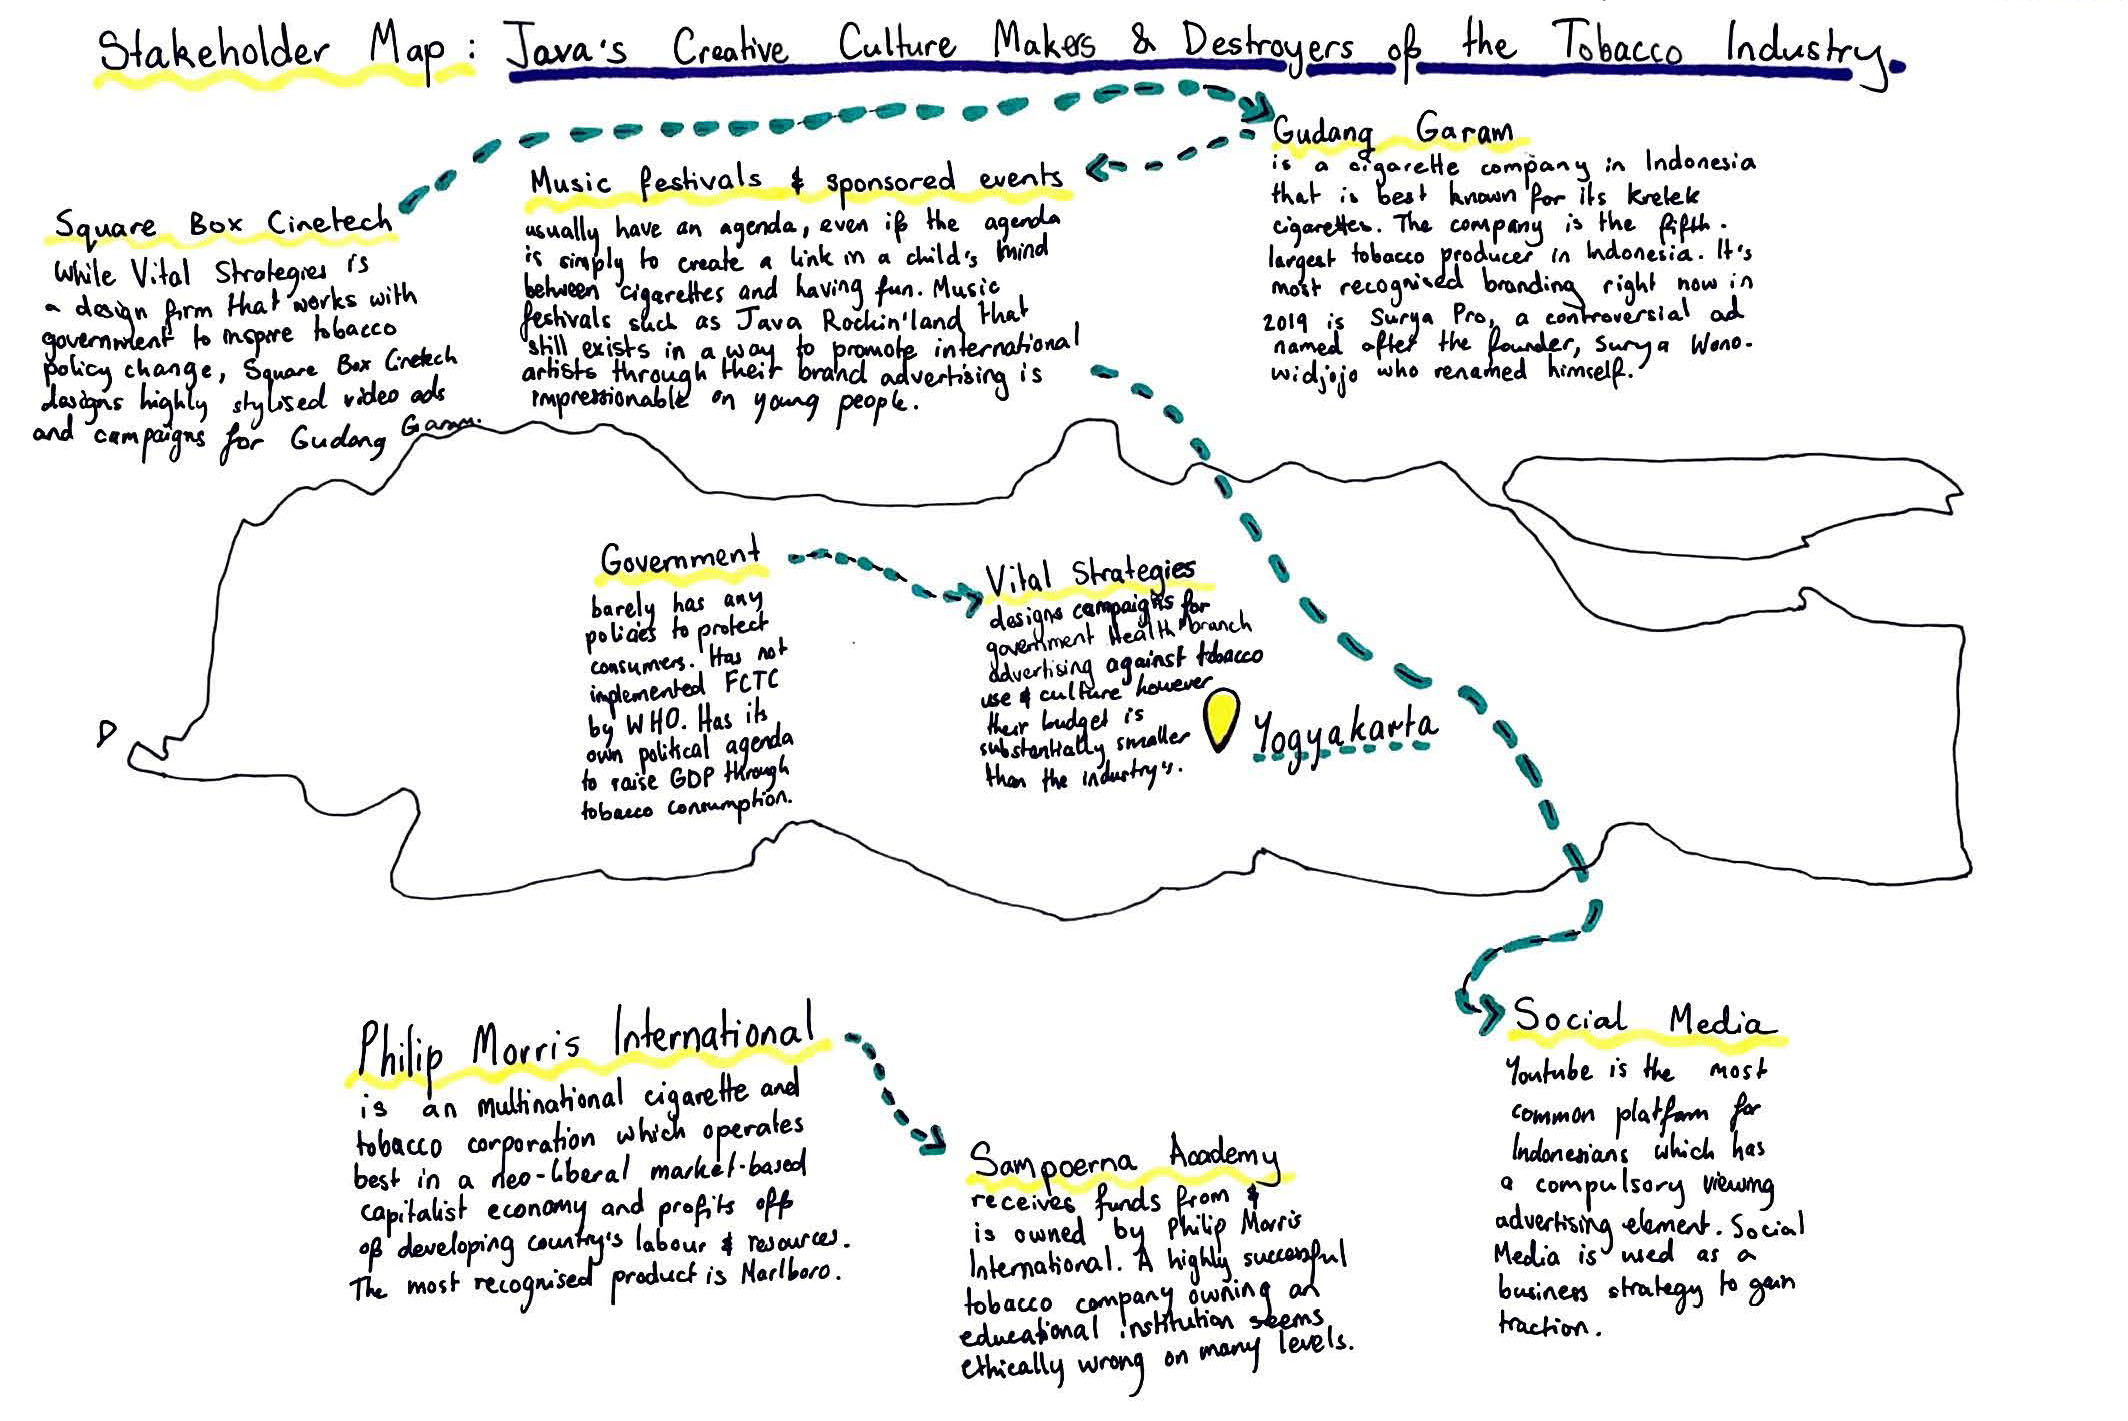 Stakeholder Map : Java's Creative Culture Makers & Destroyers of the Tobacco Industry.
Square Box Cinetech
While Vital Strategies is
a design firm that works with
government to inspire tobacco
policy change, Square Box Cinetech
designs highly stylised video ads
and campaigns for Gudang Garam.
Music festivals & sponsored events
usually have an agenda, even if the agenda
is simply to create a link in a child's mind
between cigarettes and having fun. Music
festivals such as Java Rockin'land that
still exists in a way to promote international
artists through their brand advertising is
impressionable on young people.
Gudang Garam
is a cigarette company in Indonesia
that is best known for its kretek
cigarettes. The company is the fifth-
largest tobacco producer in Indonesia. It's
most recognised branding right now in
2019 is Surya Pro, a controversial ad
named after the founder, Surya Wono-
widjojo who renamed himself.
Government
barely has any
policies to protect
consumers. Has not
implemented FCTC
by WHO. Has its
own political agenda
to raise GDP through
tobacco consumption.
Vital Strategies
designs campaigns for
government Health branch
advertising against tobacco
use & culture however
their budget is
substantially smaller
than the industry's.
Yogyakarta
Philip Morris International
is an multinational cigarette and
tobacco corporation which operates
best in a neo-liberal market-based
capitalist economy and profits off
of developing country's labour & resources.
The most recognised product is Marlboro.
Sampoerna Academy
receives funds from &
is owned by Philip Morris
International. A highly successful
tobacco company owning an
educational institution seems
ethically wrong on many levels.
Social Media
Youtube is the most
common platform for
Indonesians which has
a compulsory viewing
advertising element. Social
Media is used as a
business strategy to gain
traction.